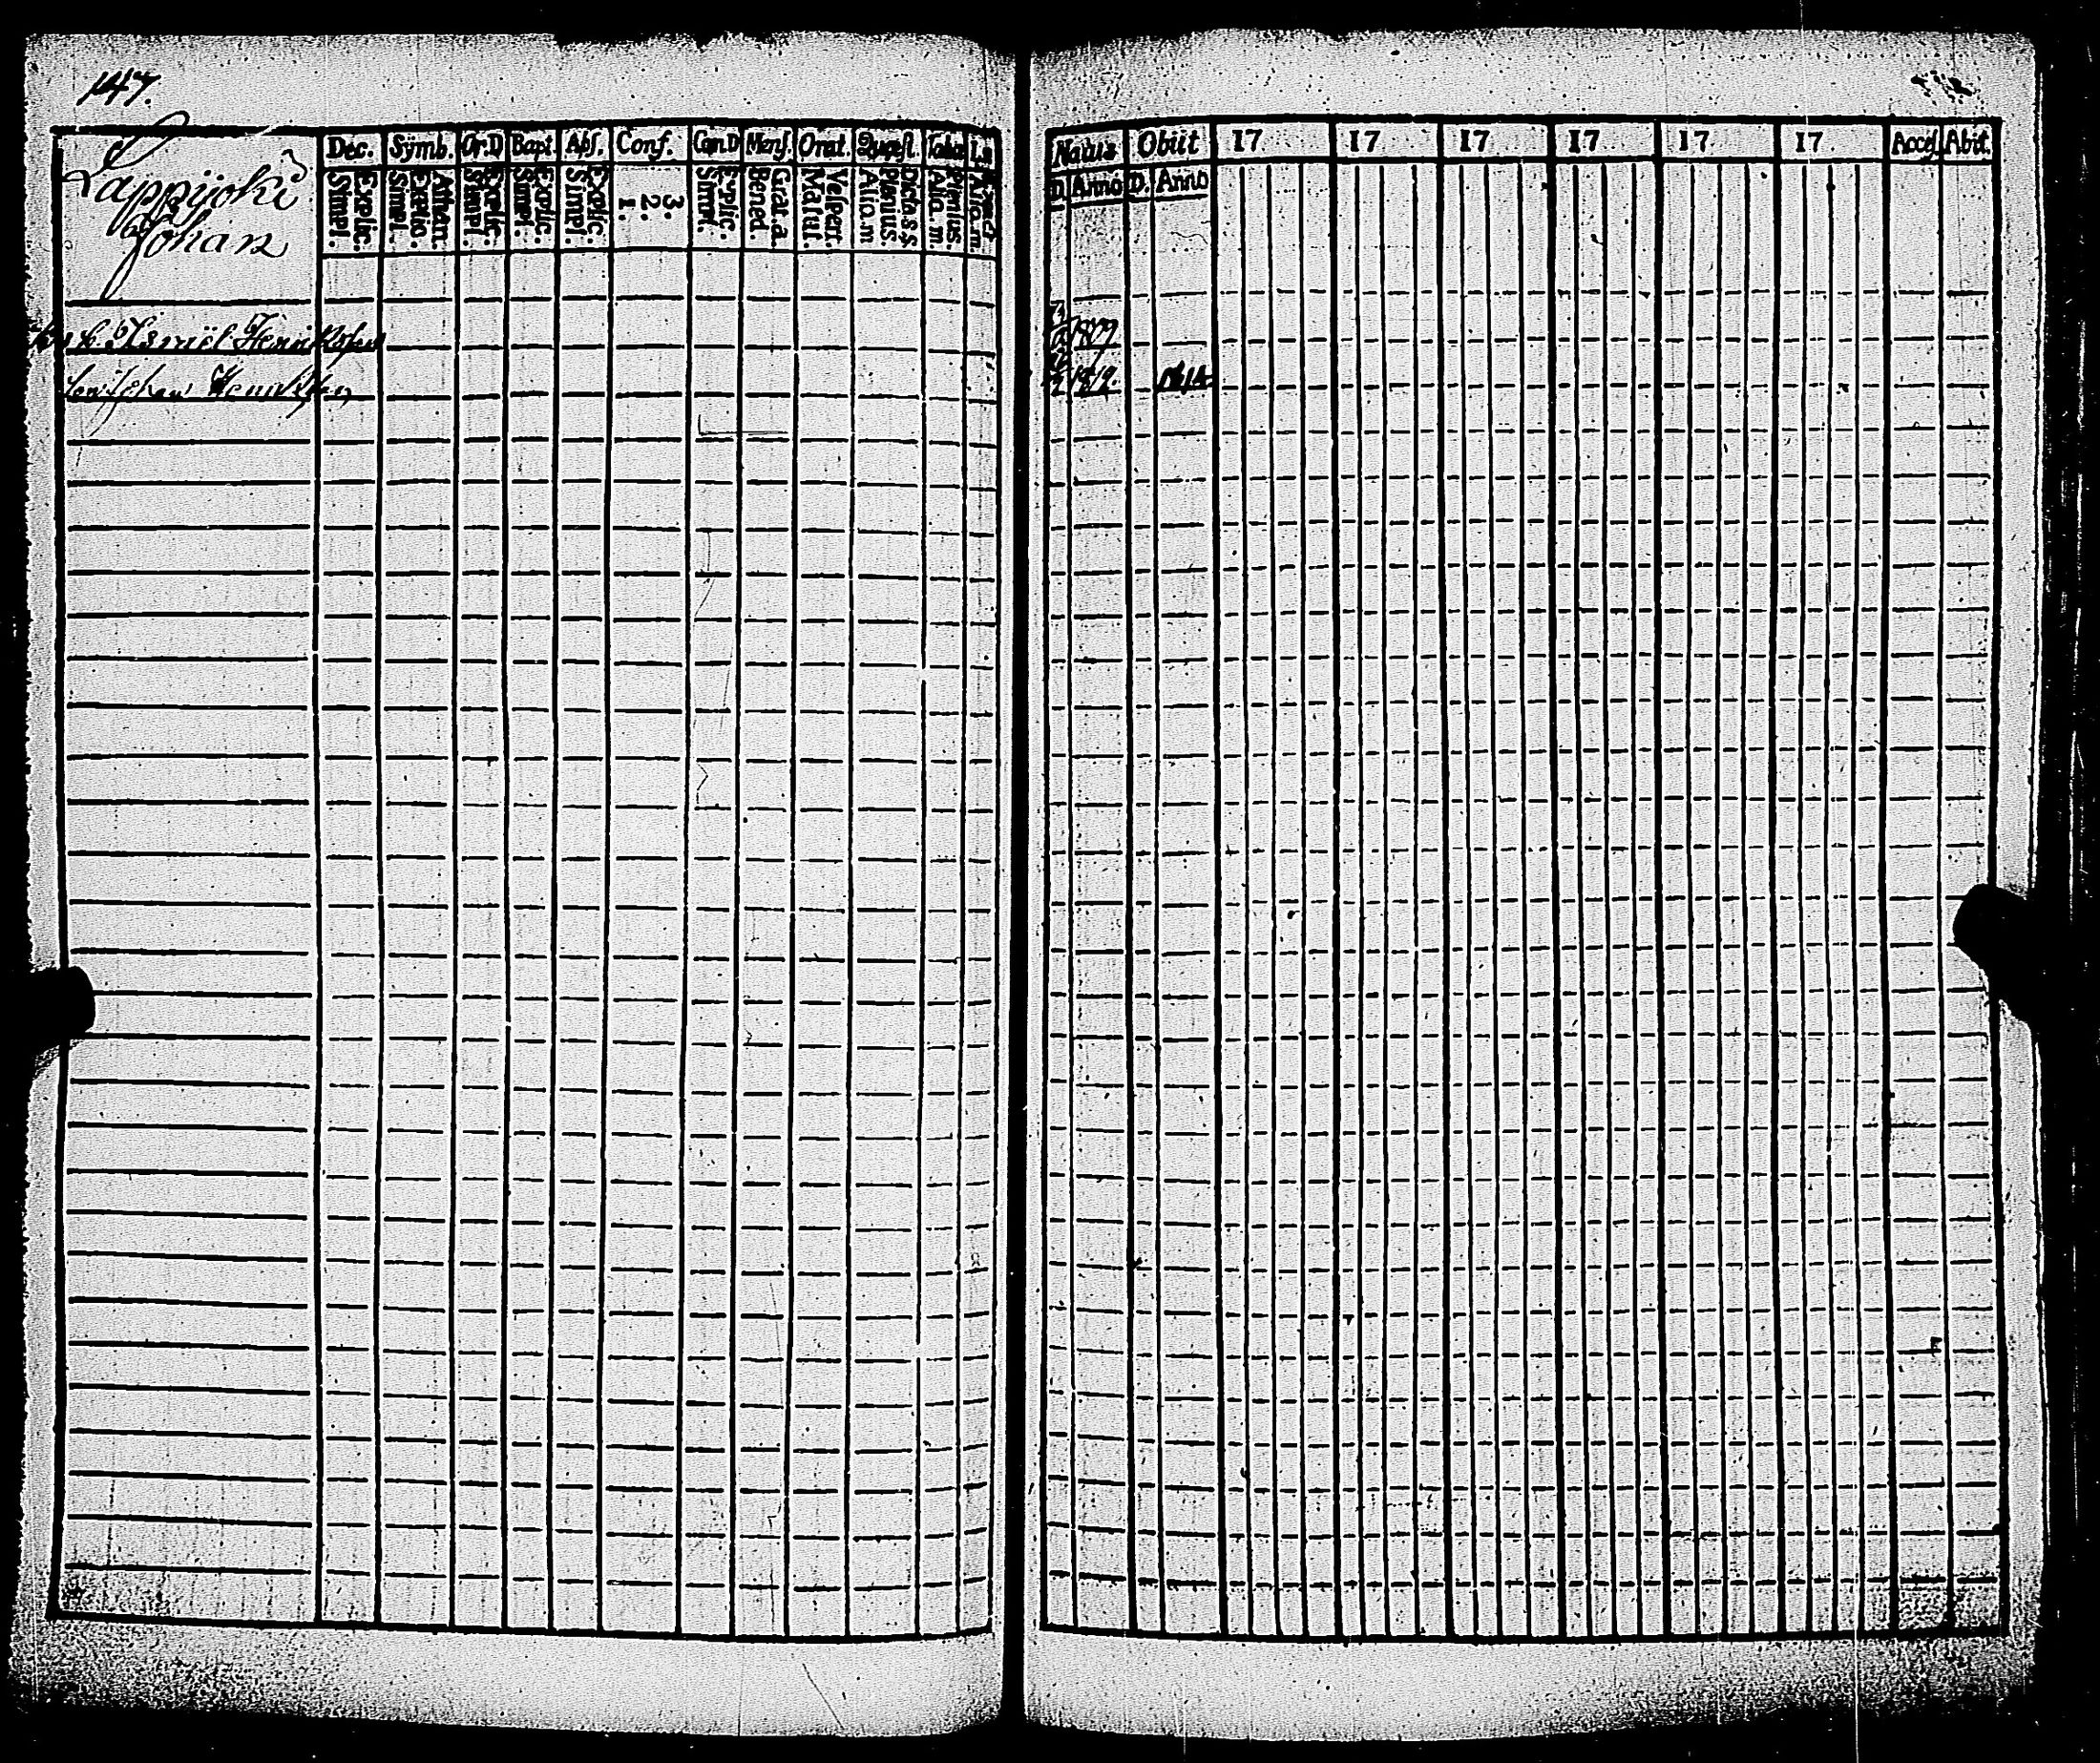 147.
Lappijoki
Johan
Dec. Symb. Or.D Bapt. Abs. Conf. Cœn.D Mens. Orat. Quæst.
Explic. Simpl. Athan. Explic. Simpl. Explic. Simpl. Explic. Simpl. Explic. Simpl. 3. 2. 1. Explic. Simpl. Grat. a. Bened. Vespert. Matut. Dicta s.s. Plenius. Alio. m
Israël Henriksson
Johan Henriksson
Natus Obiit 17 17 17 17 17 17 Access. Abit.
D. Anno D. Anno
1809
1812. 1814